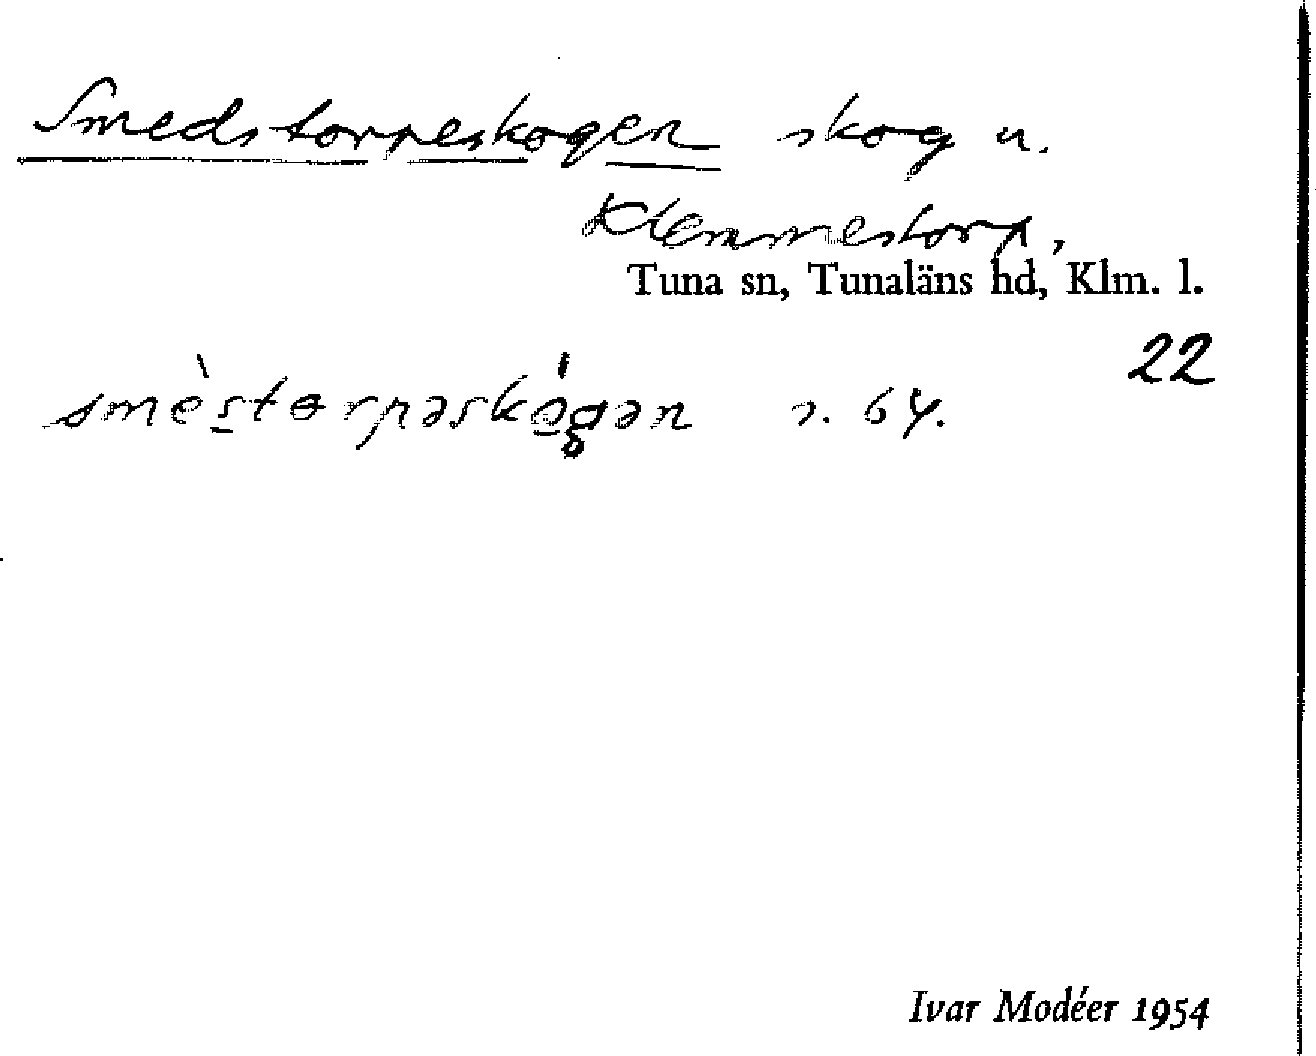 Smedstorpeskogen skog u.
Klemmestorp,
Tuna sn, Tunaläns hd, Klm. l.
22
smèstɵrpəskógən s. 64.
Ivar Modéer 1954